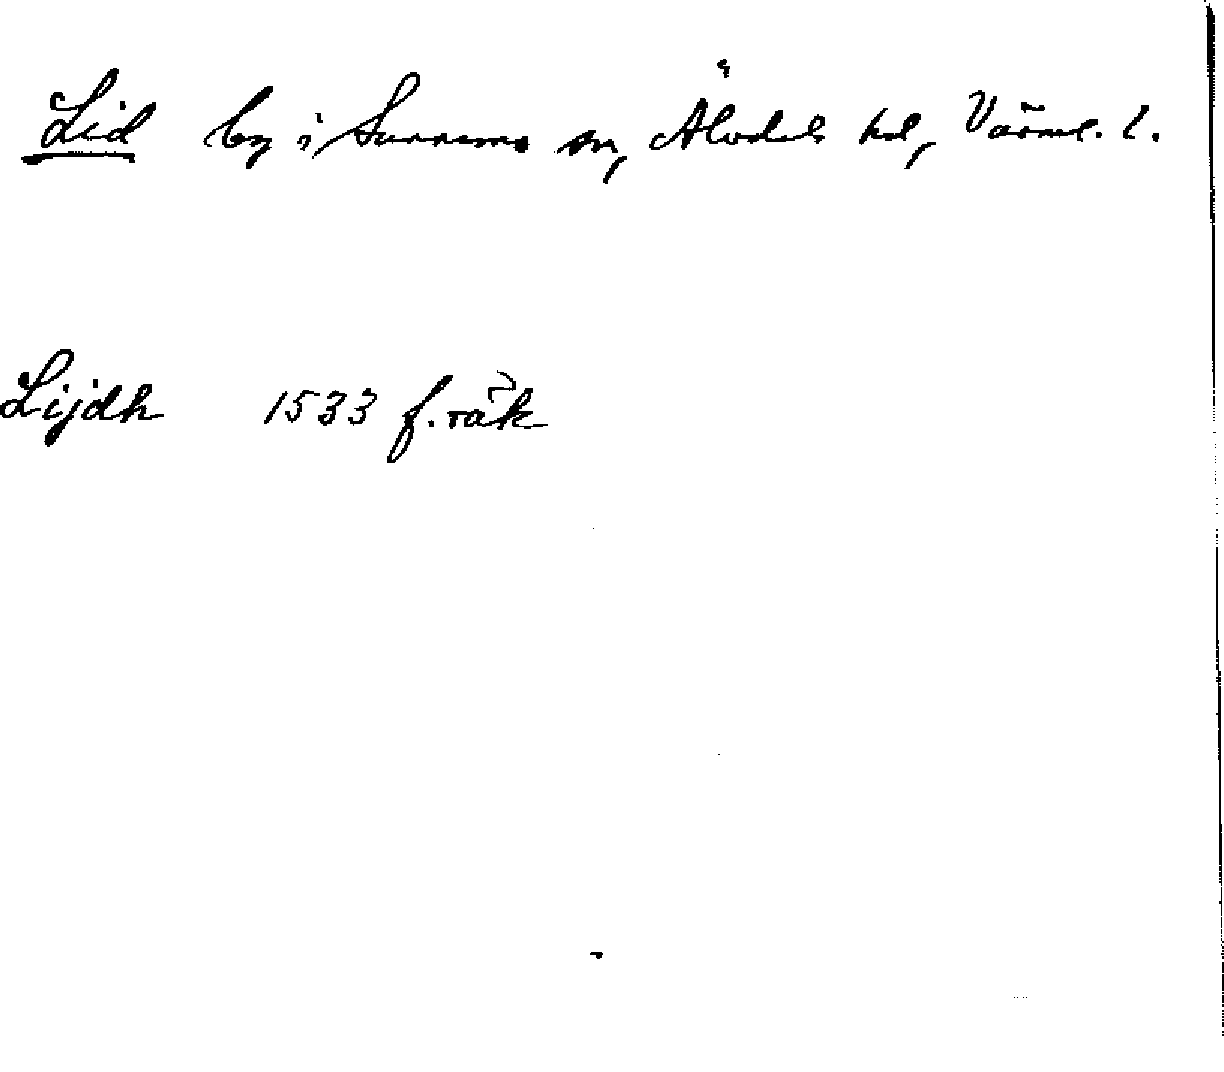 Lid by i Sunnemo sn, Älvdals hd, Värml. l.
Lijdh 1533 f. räk